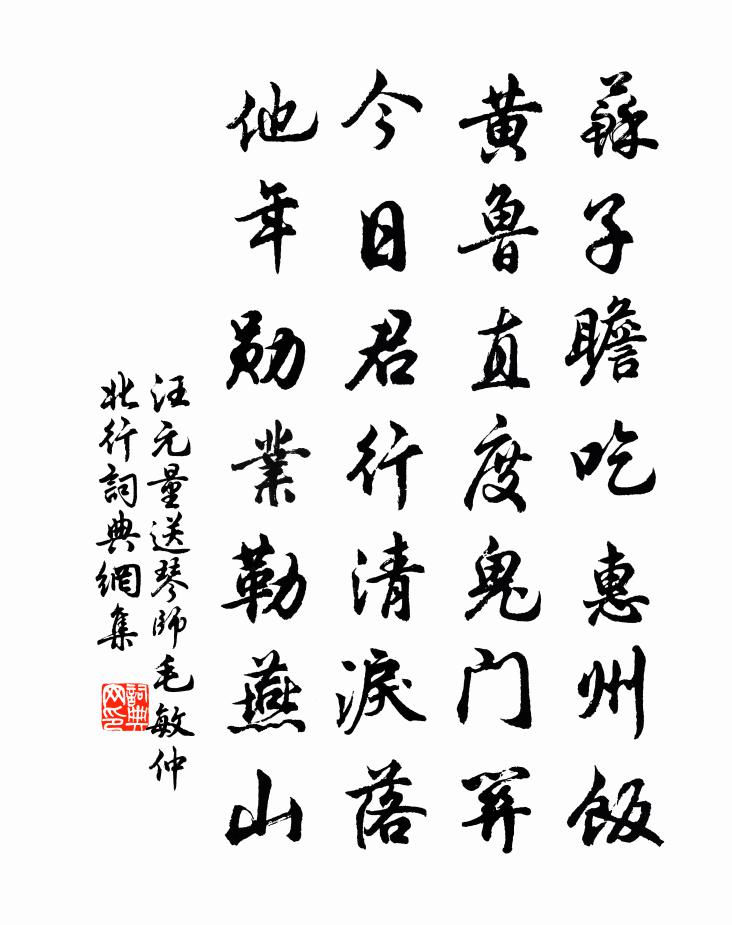 蘇子瞻吃惠州飯
黃魯直度鬼門関
今日君行清淚落
他年勛業勒燕山
汪元量送琴師毛敏仲
北行詞典網集
詞典网印